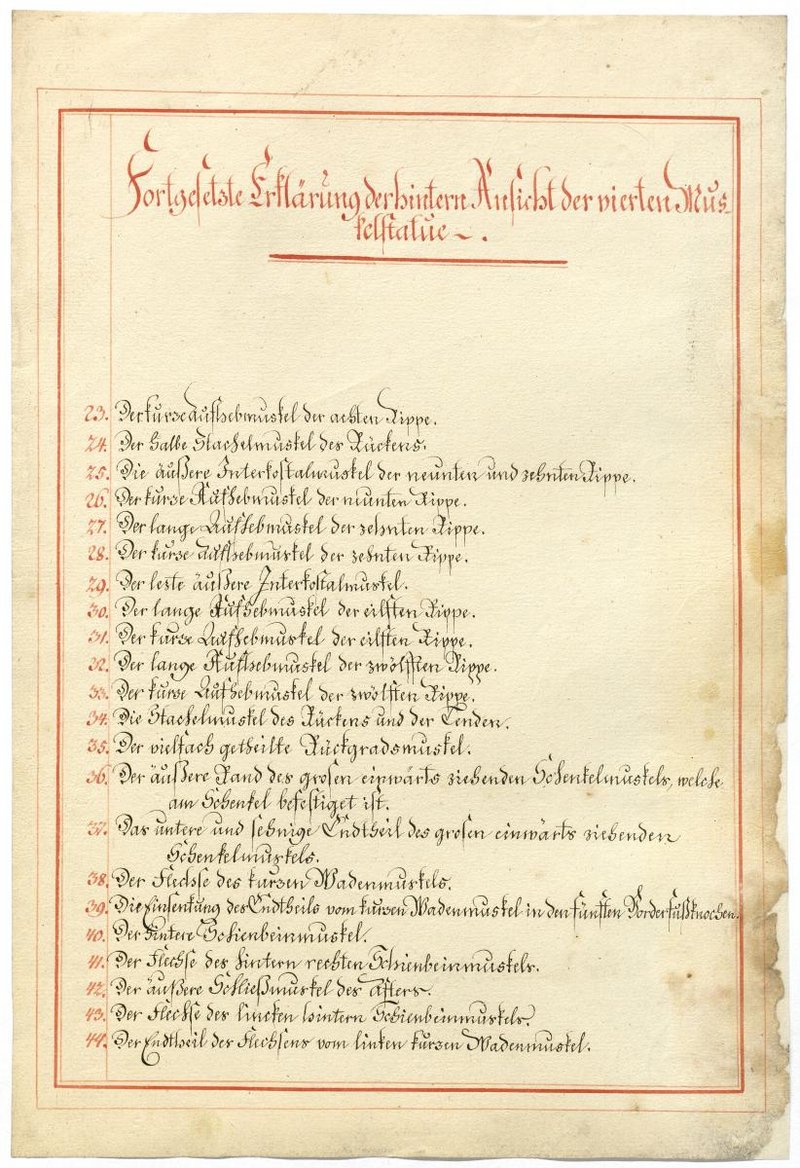 Fortgesetzte Erklärung der hintern Ansicht der vierten Mus-
kelstatue ~ .
23. Der kurze Aufhebmuskel der achten Rippe.
24. Der halbe Stachelmuskel des Rückens.
25. Die äußere Interkostalmuskel der neunten und zehnten Rippe.
26. Der kurze Aufhebmuskel der nunten Rippe.
27. Der lange Aufhebmuskel der zehnten Rippe.
28. Der kurze Aufhebmuskel der zehnten Rippe.
29. Der lezte äußere Interkostalmuskel.
30. Der lange Aufhebmuskel der eilften Rippe.
31. Der kurze Aufhebmuskel der eilften Rippe.
32. Der lange Aufhebmuskel der zwölften Rippe.
33. Der kurze Aufhebmuskel der zwölften Rippe.
34. Die Stachelmuskel des Rückens und der Lenden.
35. Der vielfach getheilte Rückgradsmuskel.
36. Der äußere Rand des grosen einwärts ziehenden Schenkelmuskels, welche
am Schenkel befestiget ist.
37. Das untere und sehnige Endtheil des grosen einwärts ziehenden
Schenkelmuskels.
38. Der Flechse des kurzen Wadenmuskels.
39. Die Einsenkung des Endtheils vom kurzen Wadenmuskel in den fünften Vorderfußknochen.
40. Der hintere Schienbeinmuskel.
41. Der Flechse des hintern rechten Schienbeinmuskels.
42. Der äußere Schließmuskel des Afters.
43. Der Flechse des lincken hintern Schienbeinmuskels.
44. Der Endtheil der Flechsens vom linken kurzen Wadenmuskel.